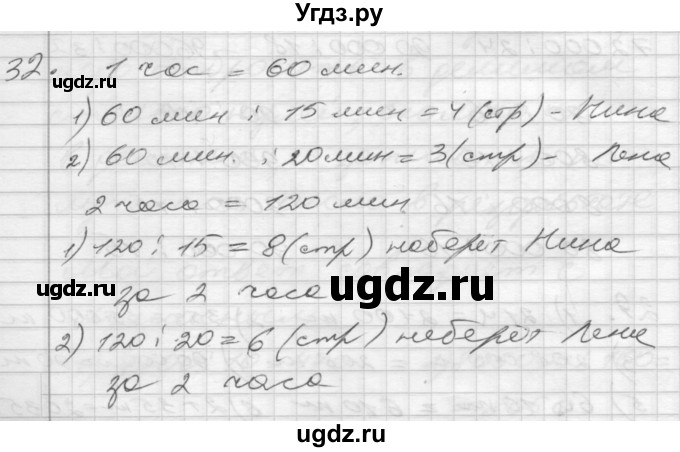 Угдз.ру
32. 1 час = 60 мин.
ugdz.ru
1) 60 мин : 15 мин = 4 (стр) - Нина
2) 60 мин. : 20 мин = 3 (стр) - Лена
2 часа = 120 мин
1) 120 : 15 = 8 (стр) наберёт Нина
за 2 часа
ugdz.ru
ugdz.ru
2) 120 : 20 = 6 (стр) наберёт Лена
за 2 часа
ugdz.ru
ugdz.ru